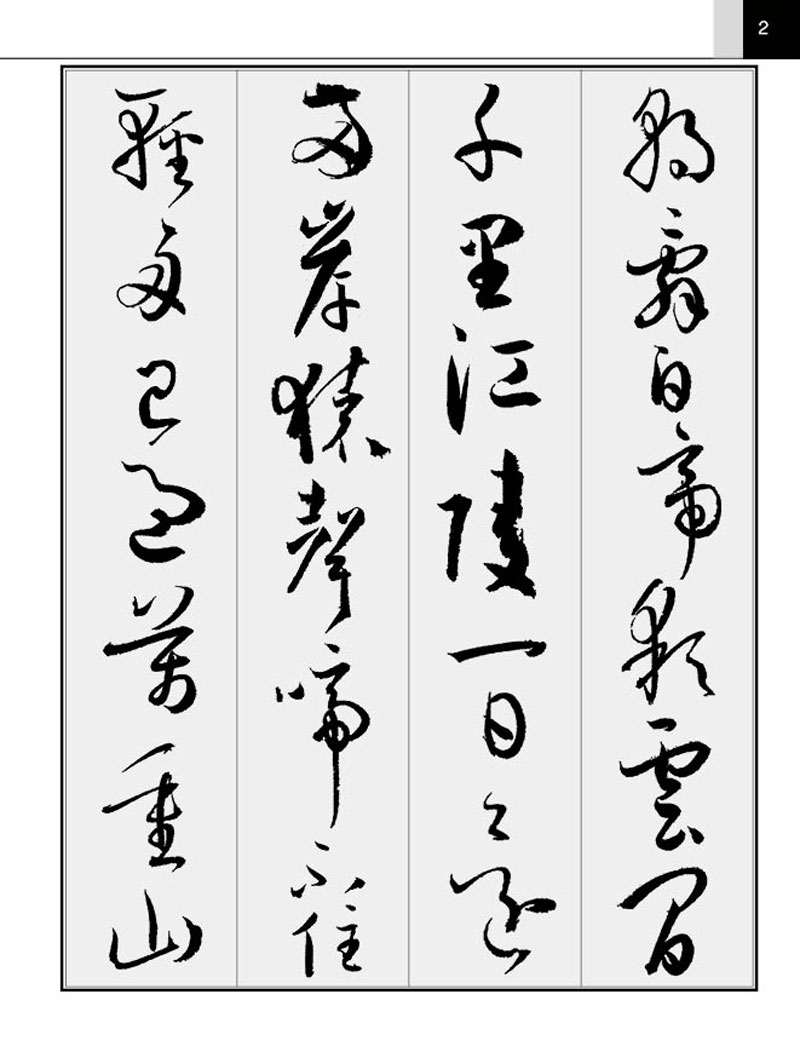 2
朝辭白帝彩雲間
千里江陵一日還
兩岸猿聲啼不住
輕舟已過萬重山